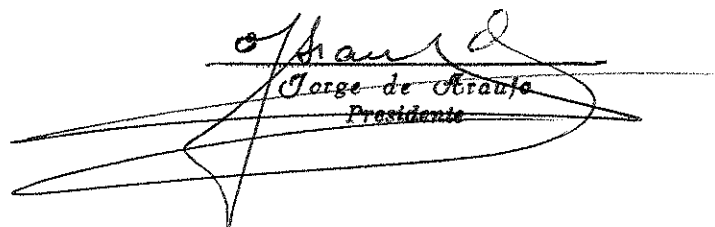 Jorge de Araujo
Presidente